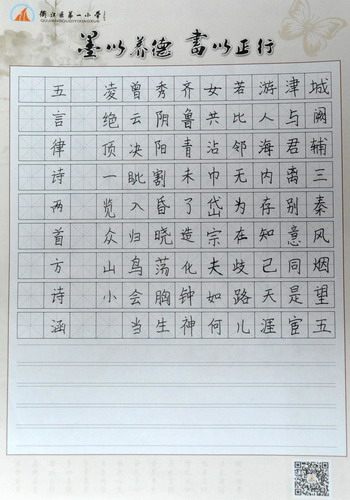 衢江区第一小学
墨以养德 書以正行
城阙辅三秦风烟望五
津与君离别意同是宦
游人海内存知己天涯
若比邻无为在歧路儿
女共沾巾岱宗夫如何
齐鲁青未了造化钟神
秀阴阳割昏晓荡胸生
曾云决眦入归鸟会当
凌绝顶一览众山小
五言律诗两首方诗涵